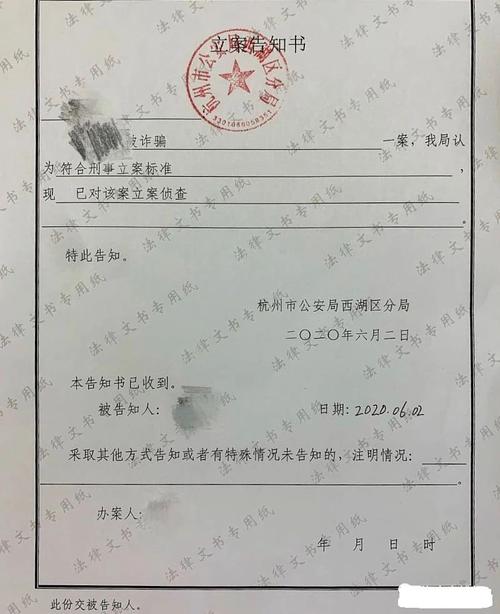 立案告知书
杭州市公安局西湖区分局
被诈骗 一案，我局认
为 符合刑事立案标准 ，
现 已对该案立案侦查
。
特此告知。
杭州市公安局西湖区分局
二〇二〇年六月二日
本告知书已收到。
被告知人： 日期：2020.06.02
采取其他方式告知或者有特殊情况未告知的，注明情况：
。
办案人：
年 月 日 时
此份交被告知人。
法律文书专用纸